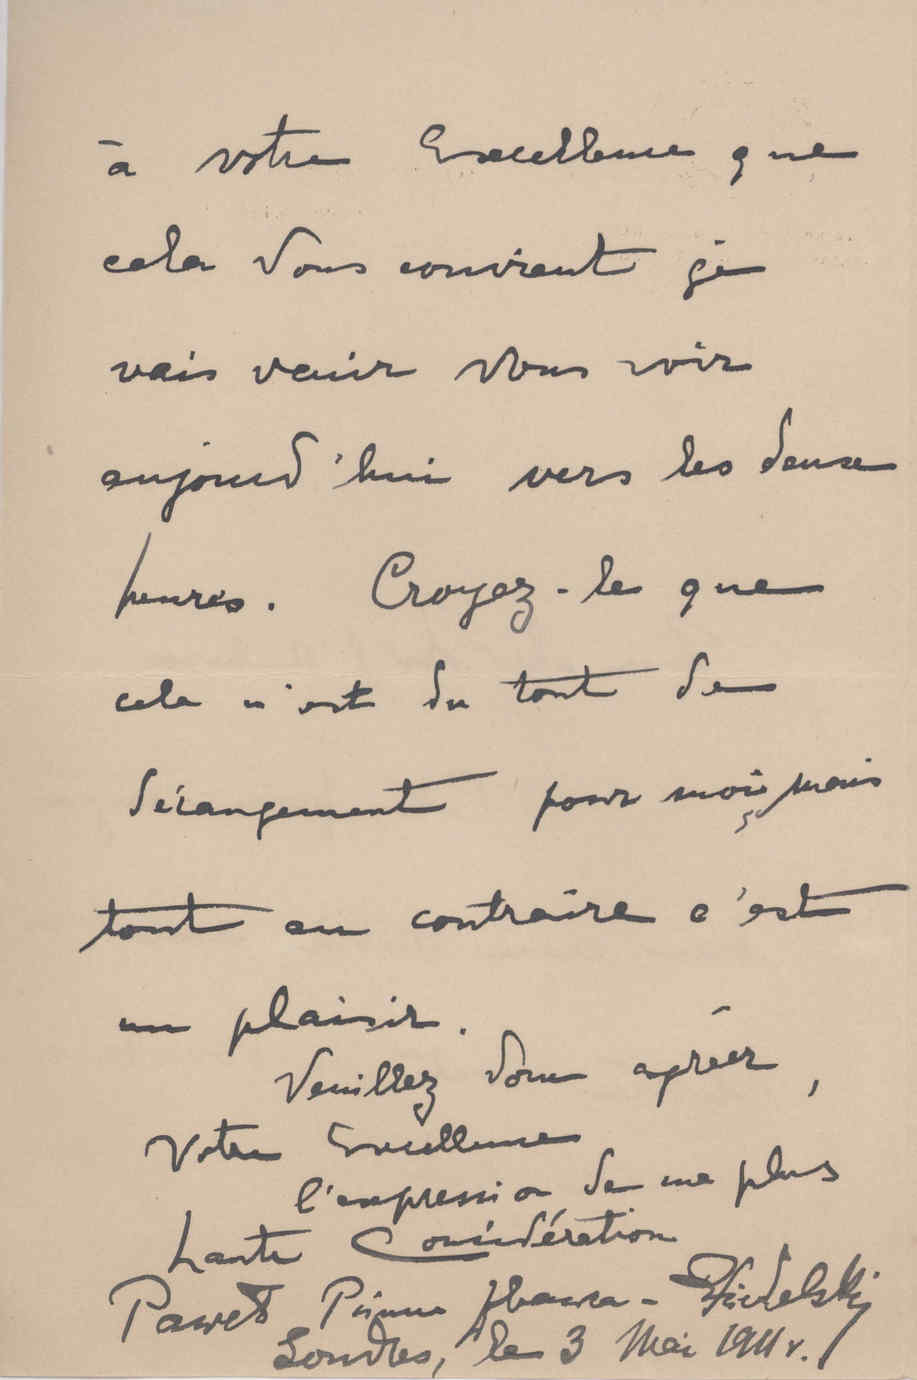 à votre Excellence que
cela Vous convient je
vais venir Vous voir
aujourd'hui vers les deux
heures. Croyez-le que
cela n'est du tout de
dérangement pour moi, mais
tout au contraire c'est
un plaisir.
Veuillez donc agréer,
Votre Excellence
l'expression de ma plus
haute Considération
Paweł
Londres, le 3 Mai 1911 r.